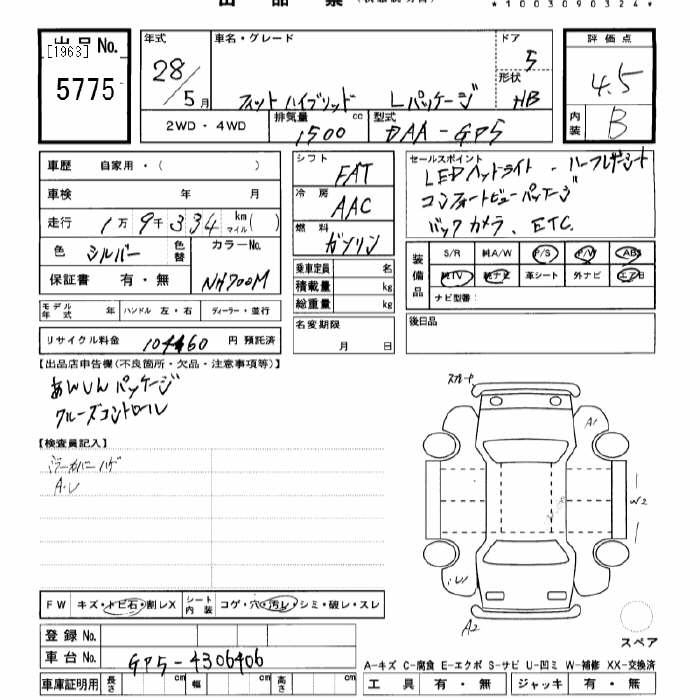 *1003090324*
出品No.
[1963]
5775
年式 28/5月
車名・グレード フィットハイブリッド Lパッケージ
ドア 5
形状 HB
2WD・4WD
排気量 1500 cc
型式 DAA-GP5
評価点 4.5
内装 B
車歴 自家用・( )
車検 年 月
走行 1万9千334 km マイル( )
色 シルバー 色替 カラーNo. NH700M
保証書 有・無
モデル年式 年 ハンドル 左・右 ディーラー・並行
リサイクル料金 円 預託済
シフト FAT
冷房 AAC
燃料 ガソリン
乗車定員 名
積載量 kg
総重量 kg
名変期限 月 日
セールスポイント
LEDヘッドライト・ハーフレザーシート
コンフォートビューパッケージ
バックカメラ、ETC
装備品 S/R 純A/W P/S P/W ABS
純TV 純ナビ 革シート 外ナビ エアB
ナビ型番:
後日品
【出品店申告欄(不良箇所・欠品・注意事項等)】
あんしんパッケージ
クルーズコントロール
【検査員記入】
ミラーカバーハゲ
A・U
FW キズ・トビ石・割レX シート内装 コゲ・穴・汚レ・シミ・破レ・スレ
A1
W2
A2
登録No.
車台No. GP5-4306406
車庫証明用 長さ cm 幅 cm 高さ cm
スペア
A-キズ C-腐食 E-エクボ S-サビ U-凹ミ W-補修 XX-交換済
工具 有・無 ジャッキ 有・無